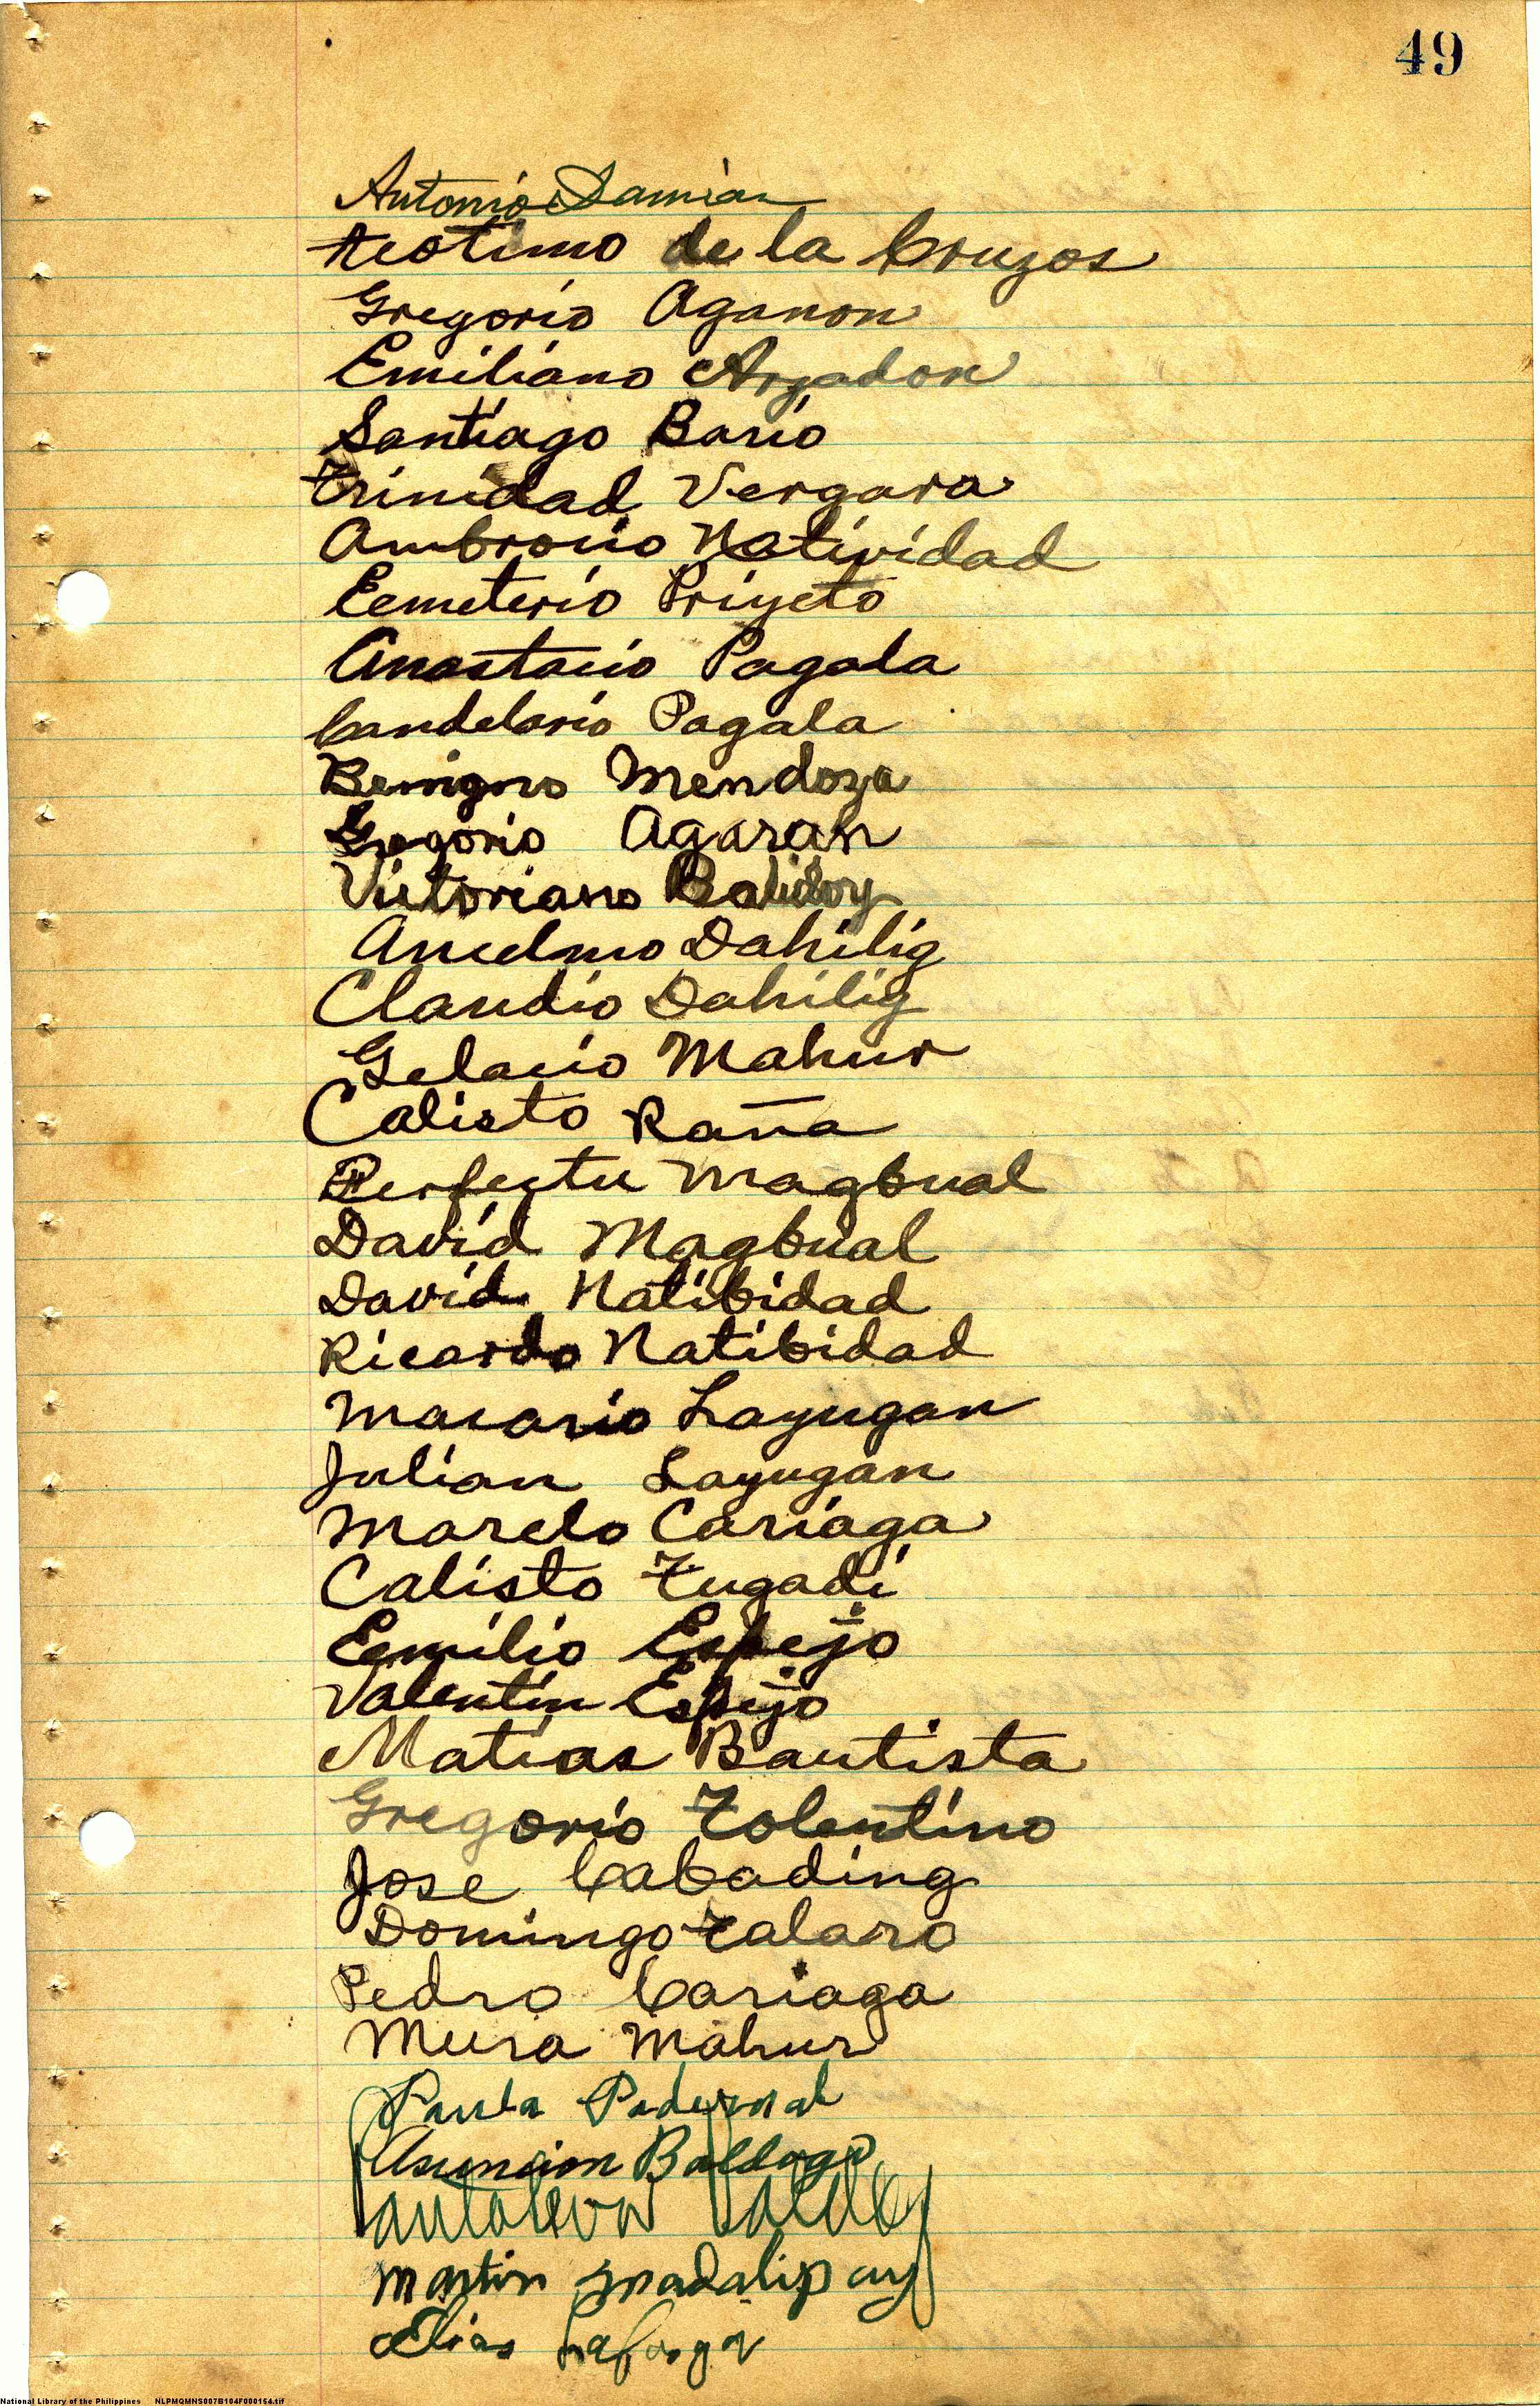 49
Antonio Damian
Teotimo de la Cruzos
Gregorio Aganon
Emiliano Argadon
Santiago Bario
Trinidad Vergara
Ambrocio Natividad
Eemeterio Priyeto
Anastacio Pagala
Candelario Pagala
Benigno Mendoza
Gregorio Agaran
Victoriano
Ancelmo Dahilig
Claudio Dahilig
Gelacio Mahur
Calisto Raña
Perfeytu Magbual
David Magbual
David Natibidad
Ricardo Natibidad
Macario Layugan
Julian Layugan
Marelo Cariaga
Calisto Tugadi
Eemilio Espejo
Valentin Espejo
Matias Bautista
Gregorio Tolentino
Jose Cabading
Domingo Talaro
Pedro Cariaga
Mura Mahur
Paula Padernal
Asuncion Baldago
Pantaleon
Martin Madalipay
Elias
National Library of the Philippines NLPMQMNS007B104F000154.tif